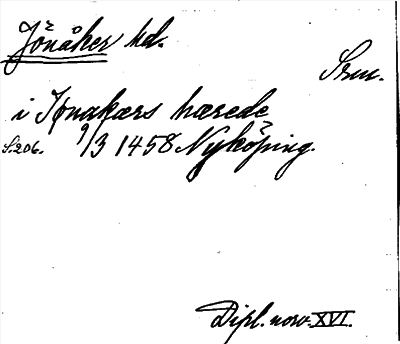 Jönåker hd.
Srm.
i Jønakærs hærede
S.206. 9/3 1458 Nyköping.
Dipl. norv. XVI.